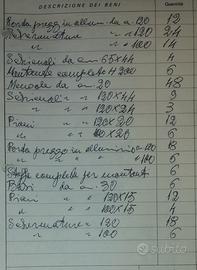 DESCRIZIONE DEI BENI
Porta prezzo in allum. da cm. 120 12
Schermature " " 120 24
" " 100 14
Schienali da cm 65x44 4
Montante completo H 200 6
Mensole da cm. 30 48
Schienali " 120x44 9
" " 120x24 3
Piani " 120x20 12
" 100x20 6
Porta prezzo in alluminio 120 8
" " 100 6
Staffe complete per montant 6
Bassi da cm. 30 6
Piani " 120x15 12
" " 100x15 4
Schermature " 120 18
" " 100 6
subito